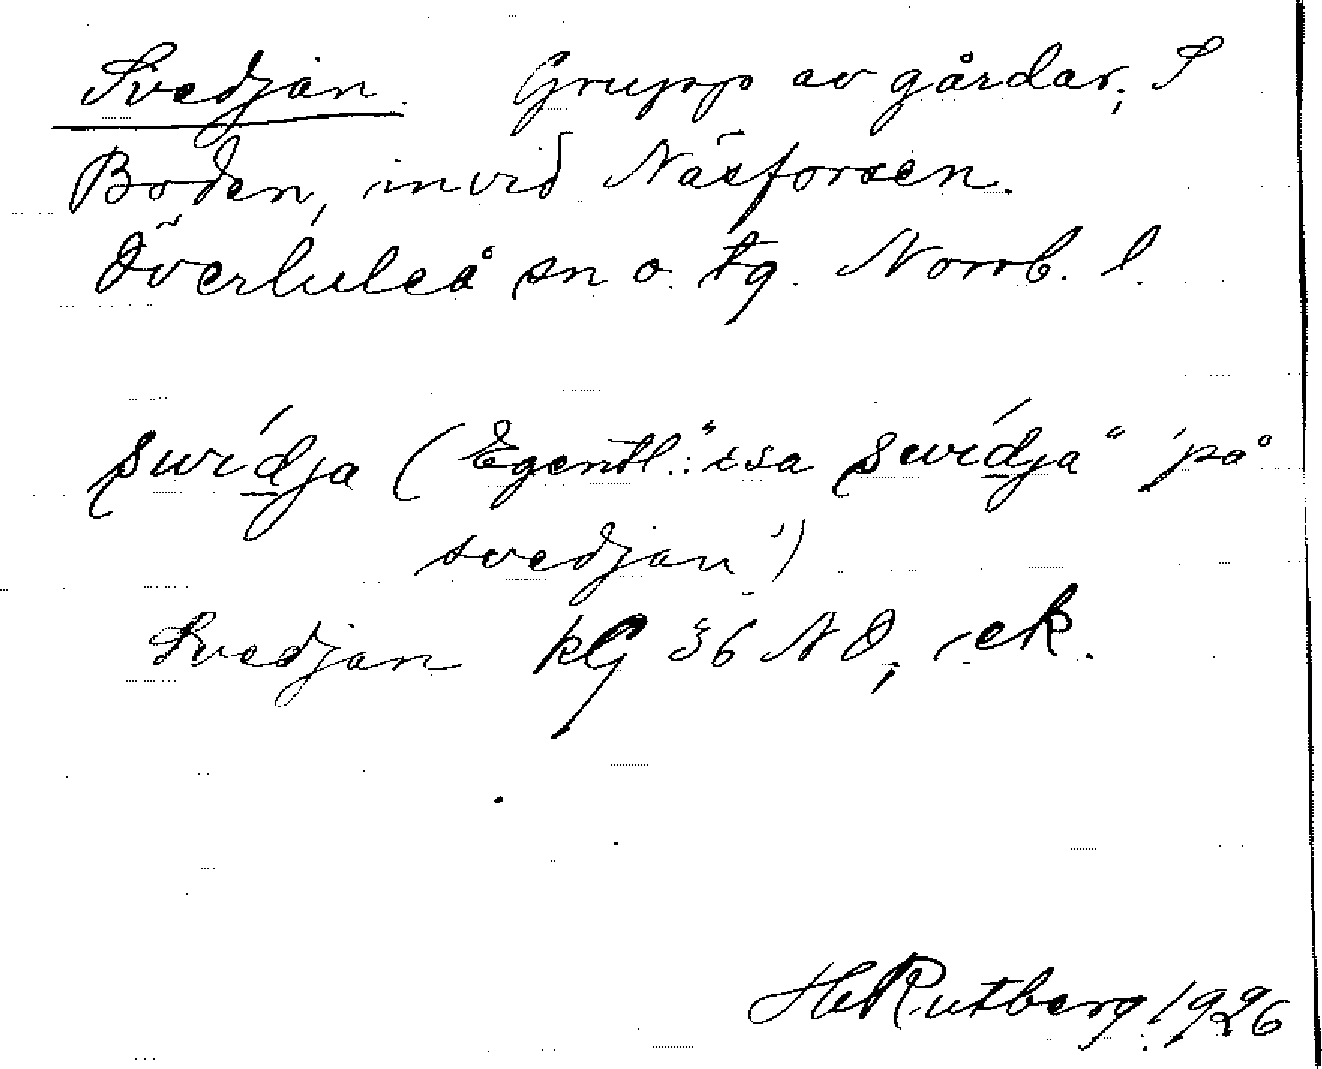 Svedjan. Grupp av gårdar, S
Boden, invid Näsforsen.
Överluleå sn o. tg. Norrb. l.
swídja (Egentl.: "isa swídja" 'på
svedjan')
Svedjan kG 36 NO, ek.
HRutberg. 1926